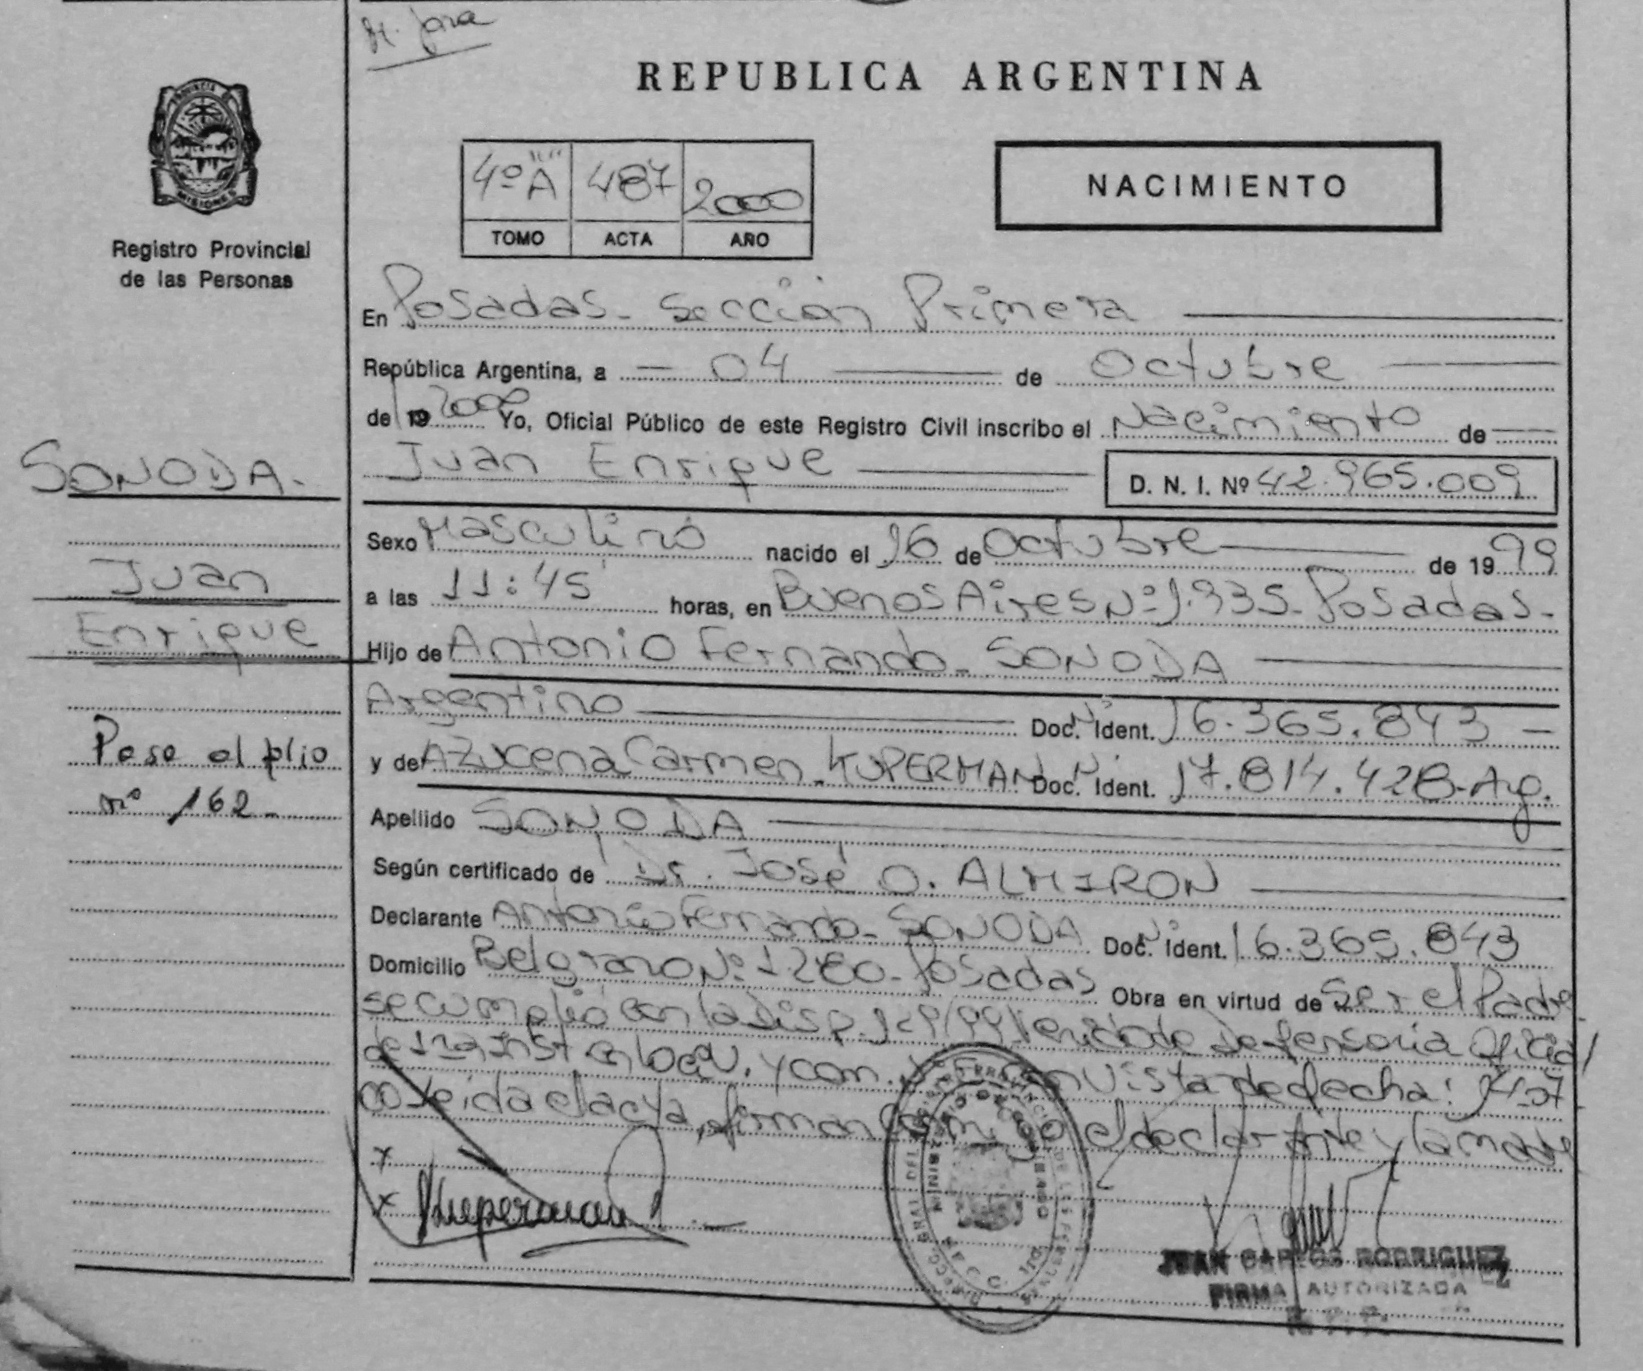 REPUBLICA ARGENTINA
PROVINCIA DE
MISIONES
Registro Provincial
de las Personas
4º "A" 487 2000
TOMO ACTA AÑO
NACIMIENTO
En Posadas - Sección Primera
República Argentina, a 04 de Octubre
de 19 2000 Yo, Oficial Público de este Registro Civil inscribo el Nacimiento de
Juan Enrique D. N. I. Nº 42.965.009
SONODA.-
Juan
Enrique
Pase al folio
nº 162-
Sexo Masculino nacido el 16 de Octubre de 19 99
a las 11:45 horas, en Buenos Aires Nº 1.935- Posadas-
Hijo de Antonio Fernando- SONODA
Argentino Doc. Nº Ident. 16.365.843 -
y de Azucena Carmen- KUPERMAN Doc. Nº Ident. 17.814.428-Arg.
Apellido SONODA
Según certificado de Dr. José O. ALMIRON
Declarante Antonio Fernando- SONODA Doc. Nº Ident. 16.365.843
Domicilio Belgrano Nº 1280- Posadas Obra en virtud de Ser el Padre
se cumplió con la Disp. 129/99 Defensoria Oficial
de 1ra Inst. y con vista de fecha: 14-07
Leída el acta, firman conmigo el declarante y la madre
x
x Kuperman
JUAN CARLOS RODRIGUEZ
FIRMA AUTORIZADA